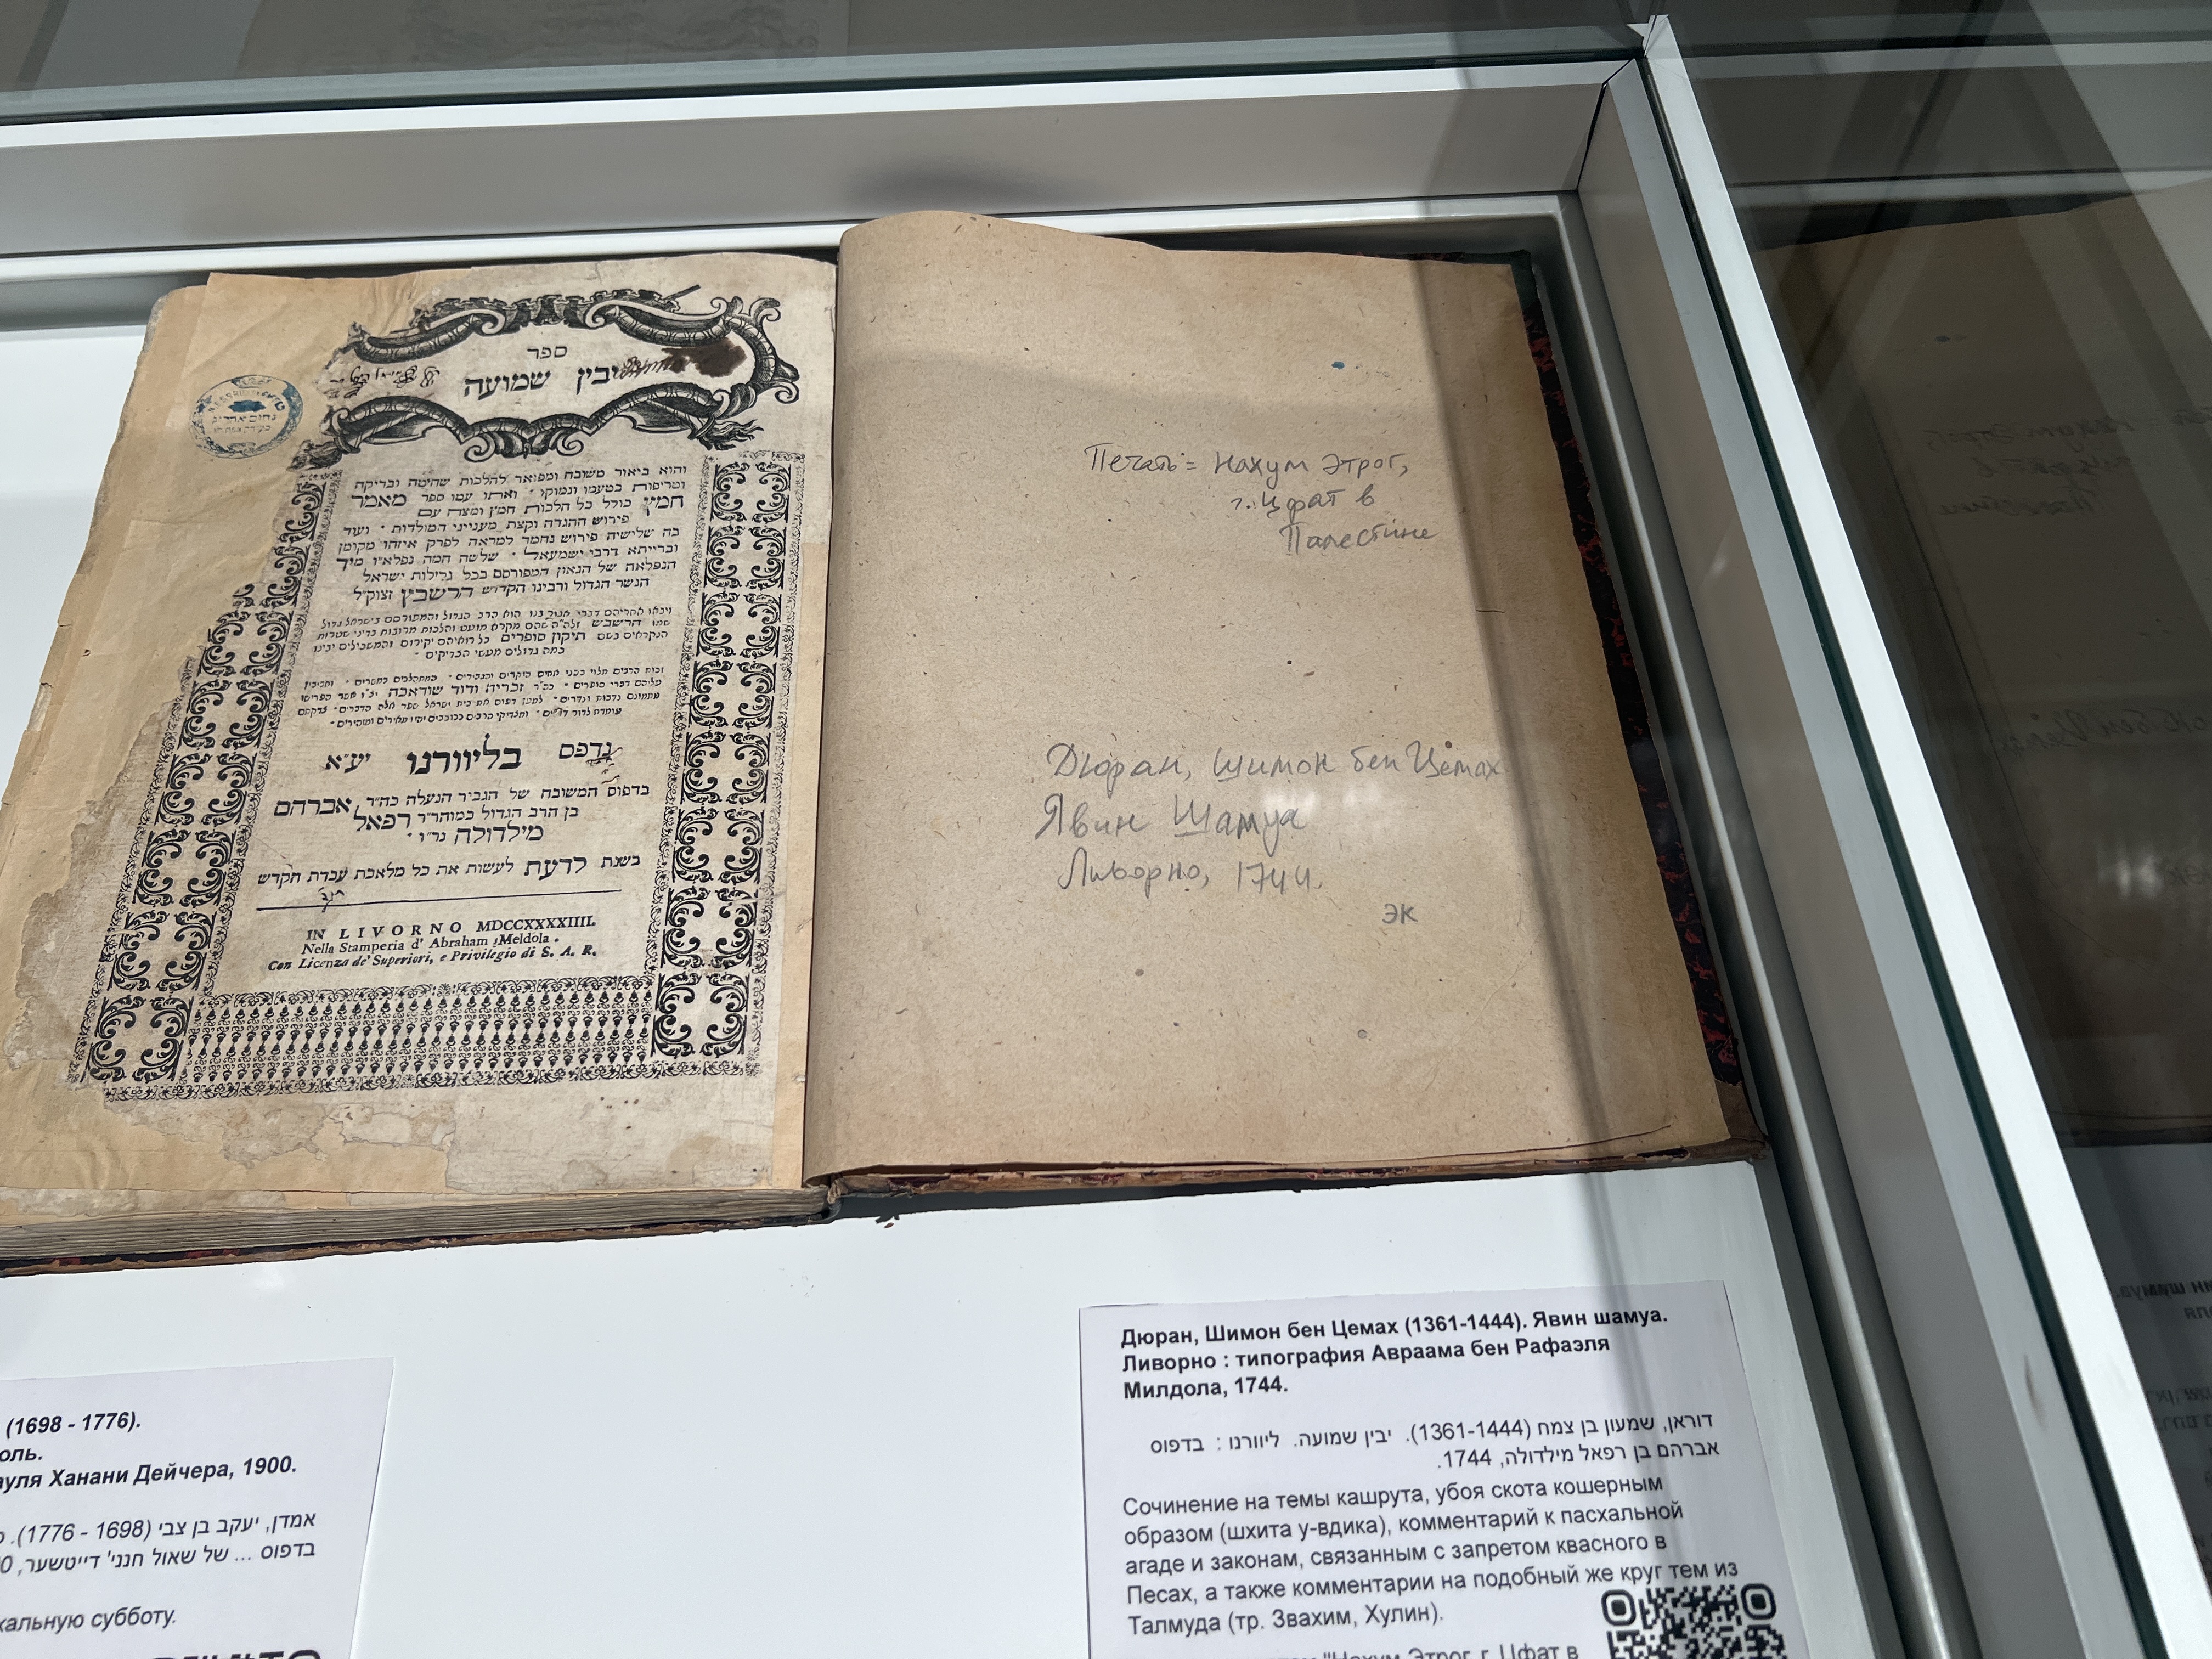 ספר
יבין שמועה
והוא ביאור משובח ומפואר להלכות שחיטה ובדיקה
וטריפות בטעמו ונמוקו · ואתו עמו ספר מאמר
חמץ כולל כל הלכות חמץ ומצה עם
פירוש ההגדה וקצת מענייני המולדות · ועוד
בה שלישיה פירוש נחמד למראה לפרק איזהו מקומן
וברייתא דרבי ישמעאל · שלשה המה נפלא״ו מיד
הנפלאה של הגאון המפורסם בכל גלילות ישראל
הנשר הגדול ורבינו הקדוש הרשבץ זצוק״ל
הנקראים בשם תיקון סופרים כל רואיהם יקירום והמשכילים יבינו
כמה גדולים מעשי הצדיקים ·
נדפס בליוורנו יע״א
בדפוס המשובח של הגביר הנעלה כה״ר אברהם
בן הרב הגדול כמוהר״ר רפאל
מילדולה נר״ו ·
בשנת לדעת לעשות את כל מלאכת עבדת הקדש
IN LIVORNO MDCCXXXXIIII.
Nella Stamperia d' Abraham Meldola .
Con Licenza de' Superiori, e Privilegio di S. A. R.
Печать = Нахум Этрог,
г. Цфат в
Палестине
Дюран, Шимон бен Цемах
Явин Шамуа
Ливорно, 1744.
ЭК
(1698 - 1776).
оль.
ауля Ханани Дейчера, 1900.
אמדן, יעקב בן צבי (1698 - 1776).
בדפוס ... של שאול חנני' דייטשער,
хальную субботу.
Дюран, Шимон бен Цемах (1361-1444). Явин шамуа.
Ливорно : типография Авраама бен Рафаэля
Милдола, 1744.
דוראן, שמעון בן צמח (1361-1444). יבין שמועה. ליוורנו : בדפוס
אברהם בן רפאל מילדולה, 1744.
Сочинение на темы кашрута, убоя скота кошерным
образом (шхита у-вдика), комментарий к пасхальной
агаде и законам, связанным с запретом квасного в
Песах, а также комментарии на подобный же круг тем из
Талмуда (тр. Звахим, Хулин).
"Нахум Этрог, г. Цфат в